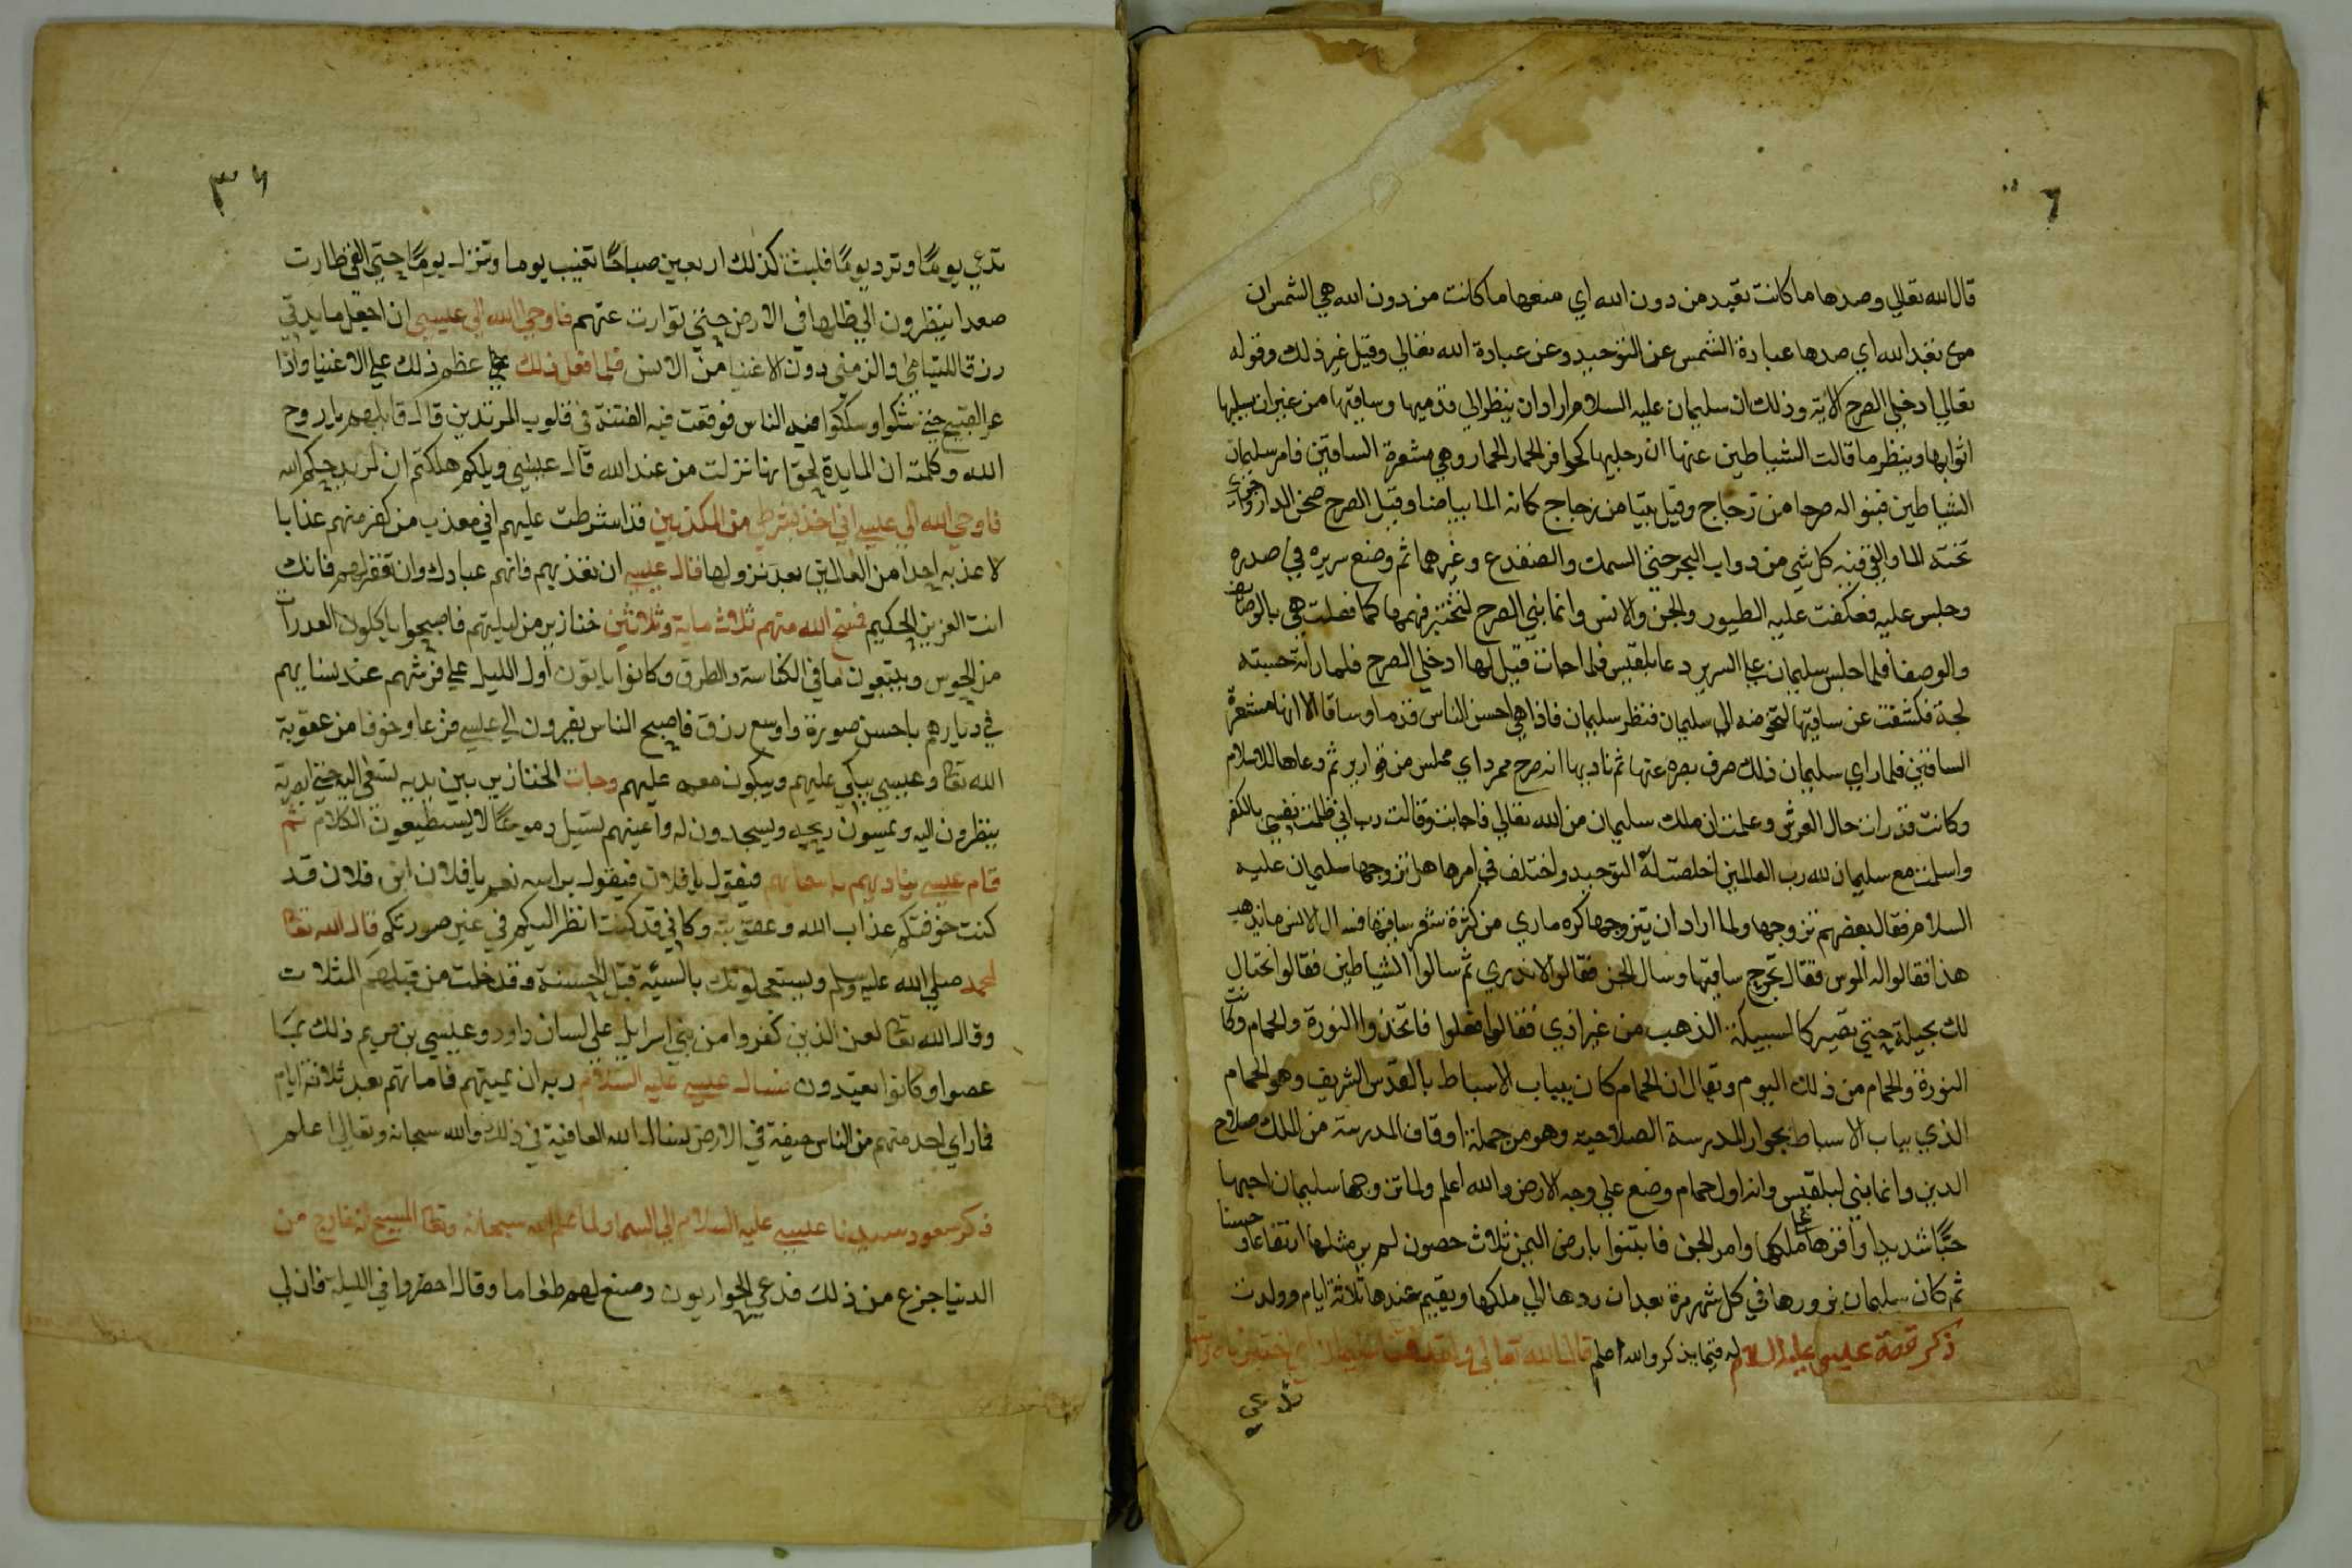 ٦
قال الله تعالي وصدها ما كانت تعبد من دون الله اي منعها ما كانت من دون الله هي الشمس ان
تعبد الله اي صدها عبادة الشمس عن التوحيد وعن عبادة الله تعالي وقيل غير ذلك وقوله
تعالي ادخلي الصرح الاية وذلك ان سليمان عليه السلام اراد ان ينظر الي قدميها وساقيها من غير ان يسلها
اثوابها وينظر ما قالت الشياطين عنها ان رجليها كحوافر الحمار الحمار وهي مشعرة الساقين فامر سليمان
الشياطين فبنوا له صرحا من زجاج وقيل بيتا من زجاج كانه الما بياضا وقيل الصرح صحن الدار واجري
تحته الما والقي فيه كل شي من دواب البحر حتي السمك والضفدع وغيرهما ثم وضع سريره في صدره
وجلس عليه فعكفت عليه الطيور والجن والانس وانما بني الصرح لتختبر فهمها كما فعلت هي بالوصايف
والوصفا فلما جلس سليمان علي السرير دعا بلقيس فلما جات قيل لها ادخلي الصرح فلما راته حسبته
لجة فكشفت عن ساقيها لتخوضه الي سليمان فنظر سليمان فاذا هي احسن الناس قدما وساقا الا انها مشعرة
الساقين فلما راي سليمان ذلك صرف بصره عنها ثم ناديها انه صرح ممرد اي مملس من قوارير ثم دعاها للاسلام
وكانت قد رات حال العرش وعلمت ان ملك سليمان من الله تعالي فاجابت وقالت رب اني ظلمت نفسي بالكفر
واسلمت مع سليمان لله رب العالمين اخلصت له التوحيد واختلف في امرها هل تزوجها سليمان عليه
السلام فقال بعضهم تزوجها ولما اراد ان يتزوجها كره ما راي من كثرة شعر ساقيها فسال الانس ما يذهب
هذا فقالوا له الموس فقال تجرح ساقيها وسال الجن فقالوا لا ندري ثم سالوا الشياطين فقالوا نحتال
لك بحيلة حتي تصير كالسبيكة الذهب من غير اذي فقالوا افعلوا فاتخذوا النورة والحمام وكانت
النورة والحمام من ذلك اليوم ويقال ان الحمام كان بباب الاسباط بالقدس الشريف وهو الحمام
الذي بباب الاسباط بجوار المدرسة الصلاحيه وهو من جملة اوقاف المدرسة من الملك صلاح
الدين وانما بني لبلقيس وانه اول حمام وضع علي وجه الارض والله اعلم ولما تزوجها سليمان احبها
حبًّا شديدا واقرها علي ملكها وامر الجن فابتنوا بارض اليمن ثلاث حصون لم ير مثلها ارتفاعا وحسنا
ثم كان سليمان يزورها في كل شهر مرة بعد ان ردها الي ملكها ويقيم عندها ثلاثة ايام وولدت
ذكر قصة عيسي عليه السلام له فيما يذكر والله اعلم قال الله تعالي
٣٦
تدعي يومًا وترد يومًا فلبث كذلك اربعين صباحًا تغيب يوما وتنزل يومًا حتي الفي طارت
صعدا ينظرون الي ظلها في الارض حتي توارت عنهم فاوحي الله الي عيسي ان اجعل مايدتي
رزقا لليتامي والزمني دون الاغنيا من الانس فلما فعل ذلك عظم ذلك علي الاغنيا واذا
عوا القبيح حتي شكوا وشككوا فيه الناس فوقعت فيه الفتنة في قلوب المرتدين قال قايلهم يا روح
الله وكلمته ان المايدة لحق انها نزلت من عند الله قال عيسي ويلكم هلكتم ان لم يرحمكم الله
فاوحي الله الي عيسي اني اخذ بشرطي من المكذبين قد اشرطت عليهم اني معذب من كفر منهم عذابا
لا عذبه احدا من العالمين بعد نزولها فقال عيسي ان تعذبهم فانهم عبادك وان تغفر لهم فانك
انت العزيز الحكيم فمسخ الله منهم ثلاث ماية وثلاثين خنازير من ليلتهم فاصبحوا ياكلون العدرات
من الحوس ويتبعون ما في الكناسة والطرق وكانوا ياتون اول الليل علي فرشهم عند نسايهم
في ديارهم باحسن صورة واوسع رزق فاصبح الناس يفرون الي عيسي فزعا وخوفا من عقوبة
الله تعا وعيسي يبكي عليهم ويبكون معه عليهم وجات الخنازير بين يديه تسعي اليه حتي ابصرته
ينظرون اليه ويمسون ريحه ويسجدون له واعينهم تسيل دموعًا لا يستطيعون الكلام ثم
قام عيسي يناديهم باسمايهم فيقول يا فلان فيقول براسه نعم يا فلان ابن فلان قد
كنت خوفتكم عذاب الله وعقوبته وكاني قد كنت انظر اليكم في غير صورتكم قال الله تعا
لمحمد صلي الله عليه وسلم ويستعجلونك بالسيئة قبل الحسنة وقد خلت من قبلهم المثلات
وقال الله تعا لعن الذين كفروا من بني اسرايل علي لسان داود وعيسي بن مريم ذلك بما
عصوا وكانوا يعتدون فسال عيسي عليه السلام ربه ان يميتهم فاماتهم بعد ثلاثة ايام
فما راي احد منهم من الناس جيفة في الارض نسال الله العافية في ذلك والله سبحانه وتعالي اعلم
ذكر سعود سيدنا عيسي عليه السلام الي السما ولما علم الله سبحانه وتعا المسيح انه خارج من
الدنيا جزع من ذلك فدعي الحواريون وصنع لهم طعاما وقال احضروا في الليلة فان لي